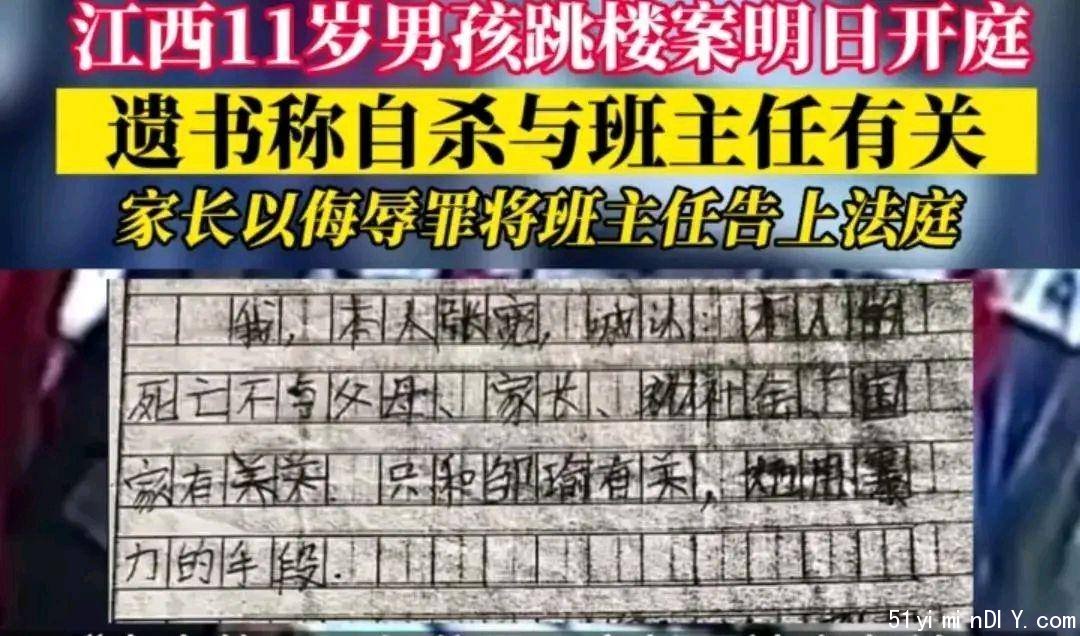 江西11岁男孩跳楼案明日开庭
遗书称自杀与班主任有关
家长以侮辱罪将班主任告上法庭
我,本人张宽,承认:本人的
死亡不与父母、家长、社会、国
家有关.只和邹瑜有关,她用暴
力的手段.
51yiminDIY.com